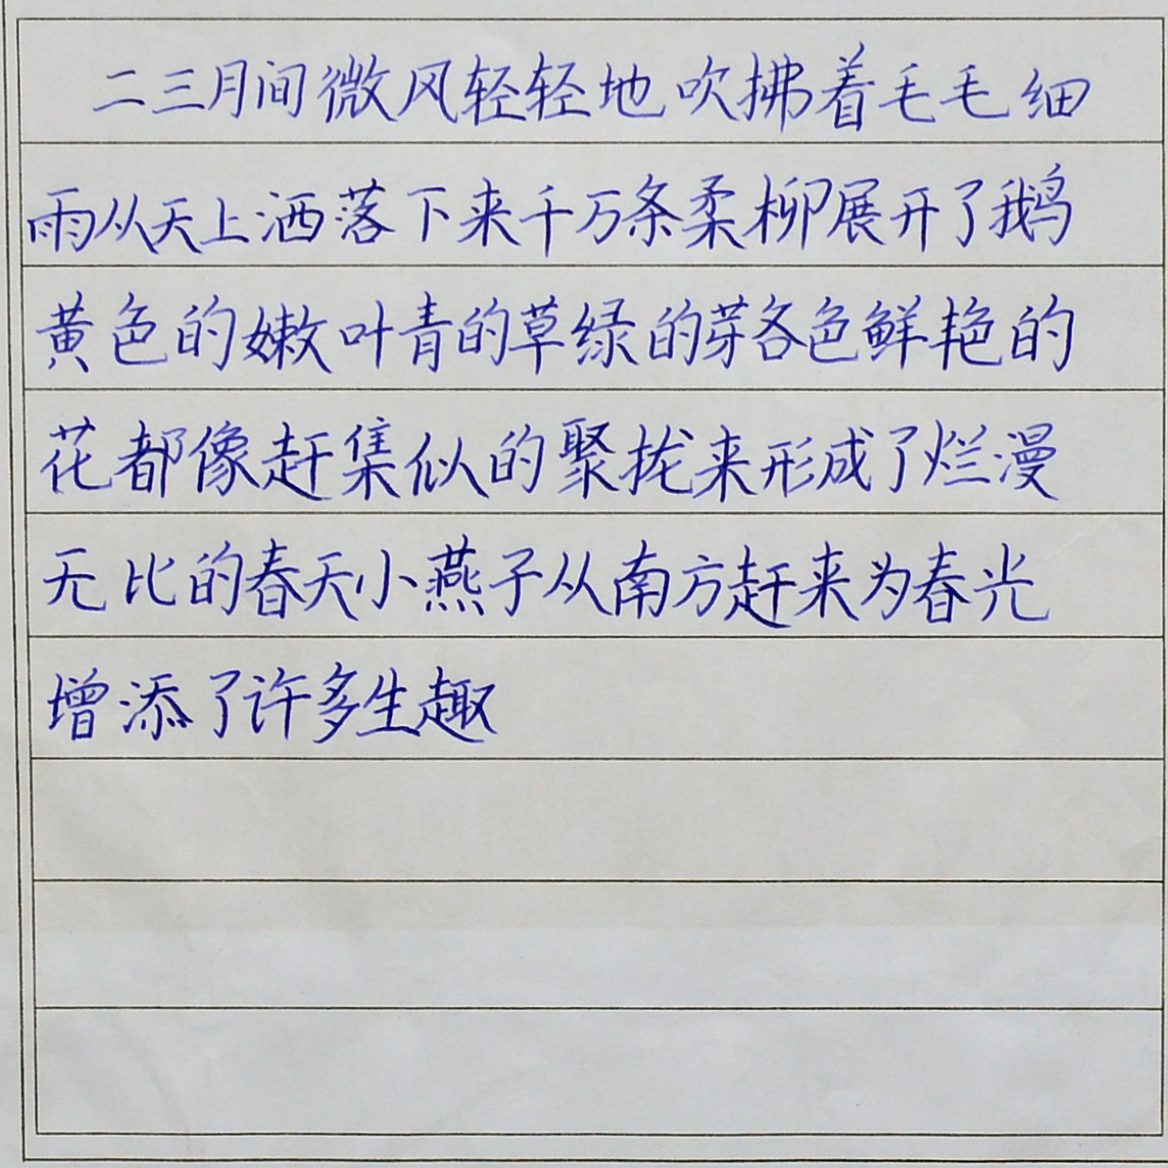 二三月间微风轻轻地吹拂着毛毛细
雨从天上洒落下来千万条柔柳展开了鹅
黄色的嫩叶青的草绿的芽各色鲜艳的
花都像赶集似的聚拢来形成了烂漫
无比的春天小燕子从南方赶来为春光
增添了许多生趣